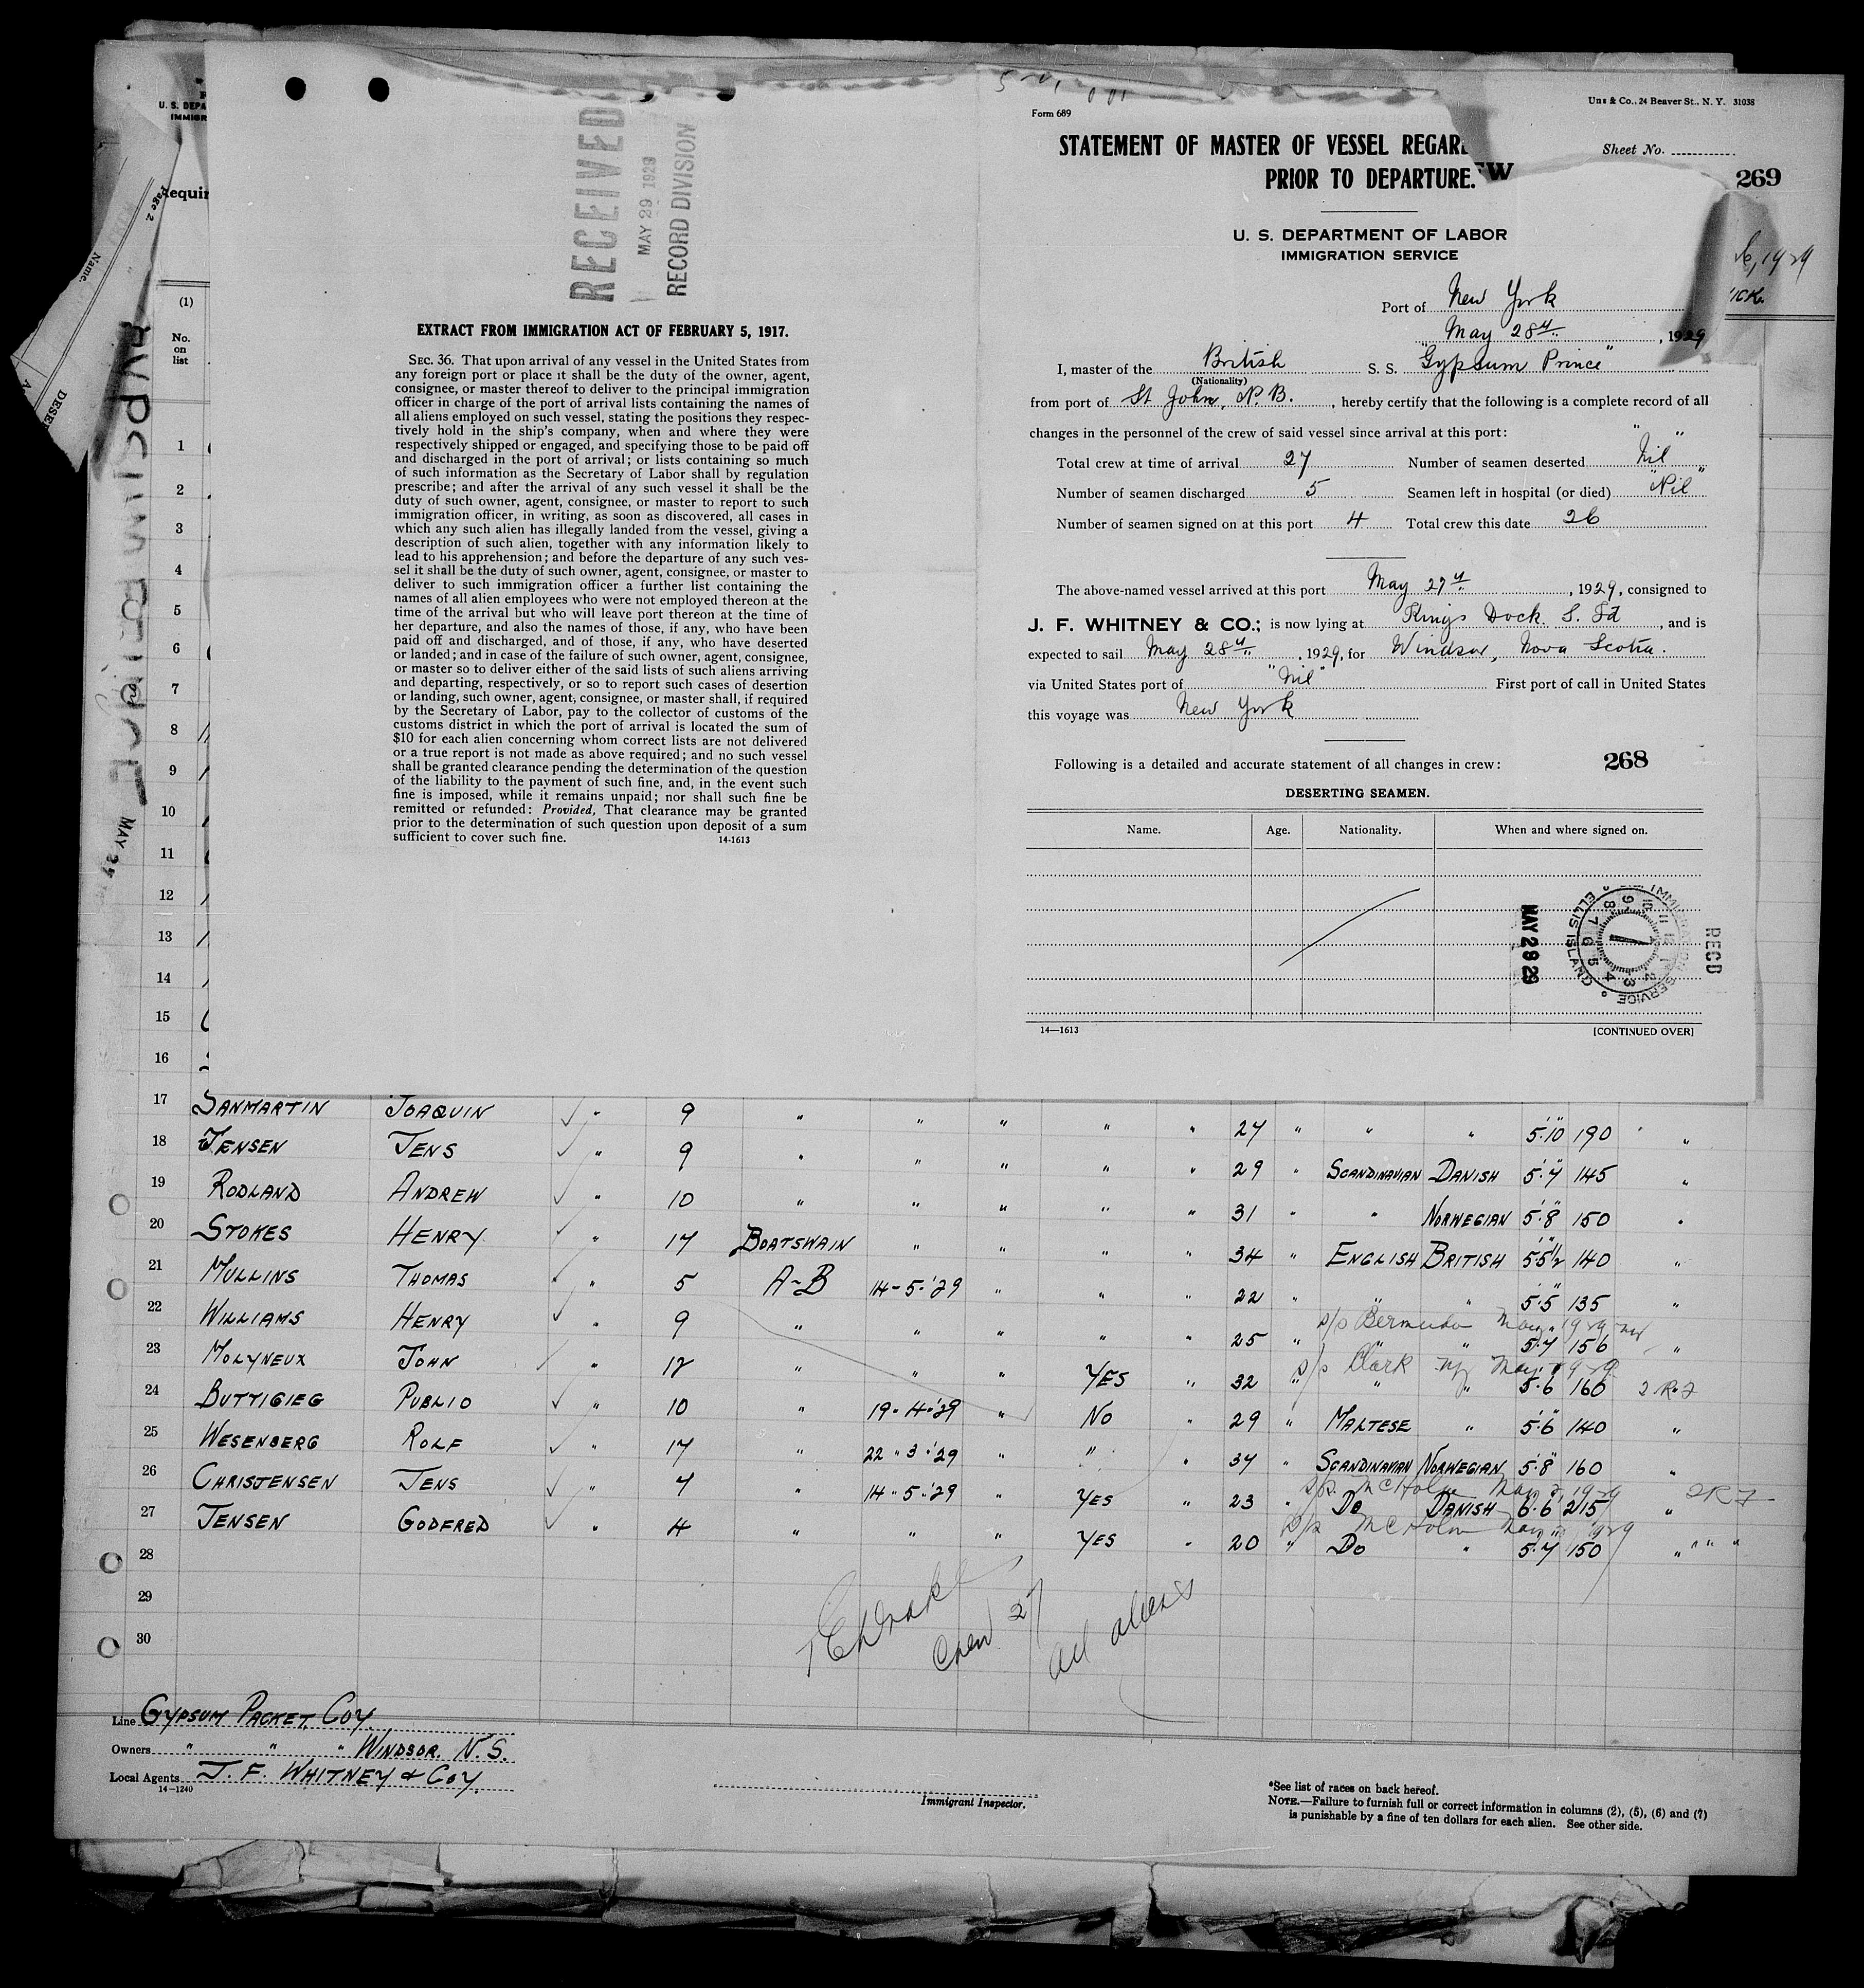 Form 689
Sheet No.
269
STATEMENT OF MASTER OF VESSEL REGAR
PRIOR TO DEPARTURE.
U. S. DEPARTMENT OF LABOR
IMMIGRATION SERVICE
Port of New York
May 28th, 1929
I, master of the British S. S. "Gypsum Prince"
(Nationality)
from port of St John, N. B., hereby certify that the following is a complete record of all
changes in the personnel of the crew of said vessel since arrival at this port:
Total crew at time of arrival 27 Number of seamen deserted "Nil"
Number of seamen discharged 5 Seamen left in hospital (or died) "Nil"
Number of seamen signed on at this port 4 Total crew this date 26
The above-named vessel arrived at this port May 27th, 1929, consigned to
J. F. WHITNEY & CO.; is now lying at Kings Dock. S. Id, and is
expected to sail May 28th, 1929, for Windsor, Nova Scotia.
via United States port of "Nil" First port of call in United States
this voyage was New York
Following is a detailed and accurate statement of all changes in crew: 268
DESERTING SEAMEN.
Name. Age. Nationality. When and where signed on.
RECD
MAY 28 29
IMMIGRATION SERVICE
ELLIS ISLAND
14—1613 [CONTINUED OVER]
RECEIVED
MAY 29 1929
RECORD DIVISION
EXTRACT FROM IMMIGRATION ACT OF FEBRUARY 5, 1917.
SEC. 36. That upon arrival of any vessel in the United States from
any foreign port or place it shall be the duty of the owner, agent,
consignee, or master thereof to deliver to the principal immigration
officer in charge of the port of arrival lists containing the names of
all aliens employed on such vessel, stating the positions they respec-
tively hold in the ship's company, when and where they were
respectively shipped or engaged, and specifying those to be paid off
and discharged in the port of arrival; or lists containing so much
of such information as the Secretary of Labor shall by regulation
prescribe; and after the arrival of any such vessel it shall be the
duty of such owner, agent, consignee, or master to report to such
immigration officer, in writing, as soon as discovered, all cases in
which any such alien has illegally landed from the vessel, giving a
description of such alien, together with any information likely to
lead to his apprehension; and before the departure of any such ves-
sel it shall be the duty of such owner, agent, consignee, or master to
deliver to such immigration officer a further list containing the
names of all alien employees who were not employed thereon at the
time of the arrival but who will leave port thereon at the time of
her departure, and also the names of those, if any, who have been
paid off and discharged, and of those, if any, who have deserted
or landed; and in case of the failure of such owner, agent, consignee,
or master so to deliver either of the said lists of such aliens arriving
and departing, respectively, or so to report such cases of desertion
or landing, such owner, agent, consignee, or master shall, if required
by the Secretary of Labor, pay to the collector of customs of the
customs district in which the port of arrival is located the sum of
$10 for each alien concerning whom correct lists are not delivered
or a true report is not made as above required; and no such vessel
shall be granted clearance pending the determination of the question
of the liability to the payment of such fine, and, in the event such
fine is imposed, while it remains unpaid; nor shall such fine be
remitted or refunded: Provided, That clearance may be granted
prior to the determination of such question upon deposit of a sum
sufficient to cover such fine. 14-1613
U. S. DEPA
IMMIGR
Requir
Page 2
Name.
(1)
No.
on
list
1
2
3
4
5
6
7
8
9
10
11
12
13
14
15
16
17 SANMARTIN JOAQUIN " 9 " " " " " 24 " " " 5'10" 190 "
18 JENSEN JENS " 9 " " " " " 29 " SCANDINAVIAN DANISH 5'7" 145 "
19 RODLAND ANDREW " 10 " " " " " 31 " " NORWEGIAN 5'8" 150 "
20 STOKES HENRY " 17 BOATSWAIN " " " " 34 " ENGLISH BRITISH 5'5½" 140 "
21 MULLINS THOMAS " 5 A-B 14-5-'29 " " " 22 " " " 5'5" 135 "
22 WILLIAMS HENRY " 9 " " " " " 25 " " " 5'7" 156 "
s/s Bermuda May 1929
23 MOLYNEUX JOHN " 12 " " " YES " 32 " " " 5'6" 160
24 BUTTIGIEG PUBLIO " 10 " 19-4-'29 " NO " 29 " MALTESE " 5'6" 140 "
25 WESENBERG ROLF " 17 " 22-3-'29 " " " 34 " SCANDINAVIAN NORWEGIAN 5'8" 160 "
26 CHRISTENSEN JENS " 7 " 14-5-'29 " YES " 23 " DO DANISH 6'6" 215 "
27 JENSEN GODFRED " 4 " " " YES " 20 " DO " 5'7" 150 "
28
29
30
Crew 27
all aliens
Line GYPSUM PACKET COY.
Owners " " " WINDSOR. N.S.
Local Agents J. F. WHITNEY & COY.
14-1240
Immigrant Inspector.
*See list of races on back hereof.
NOTE.—Failure to furnish full or correct information in columns (2), (5), (6) and (7)
is punishable by a fine of ten dollars for each alien. See other side.